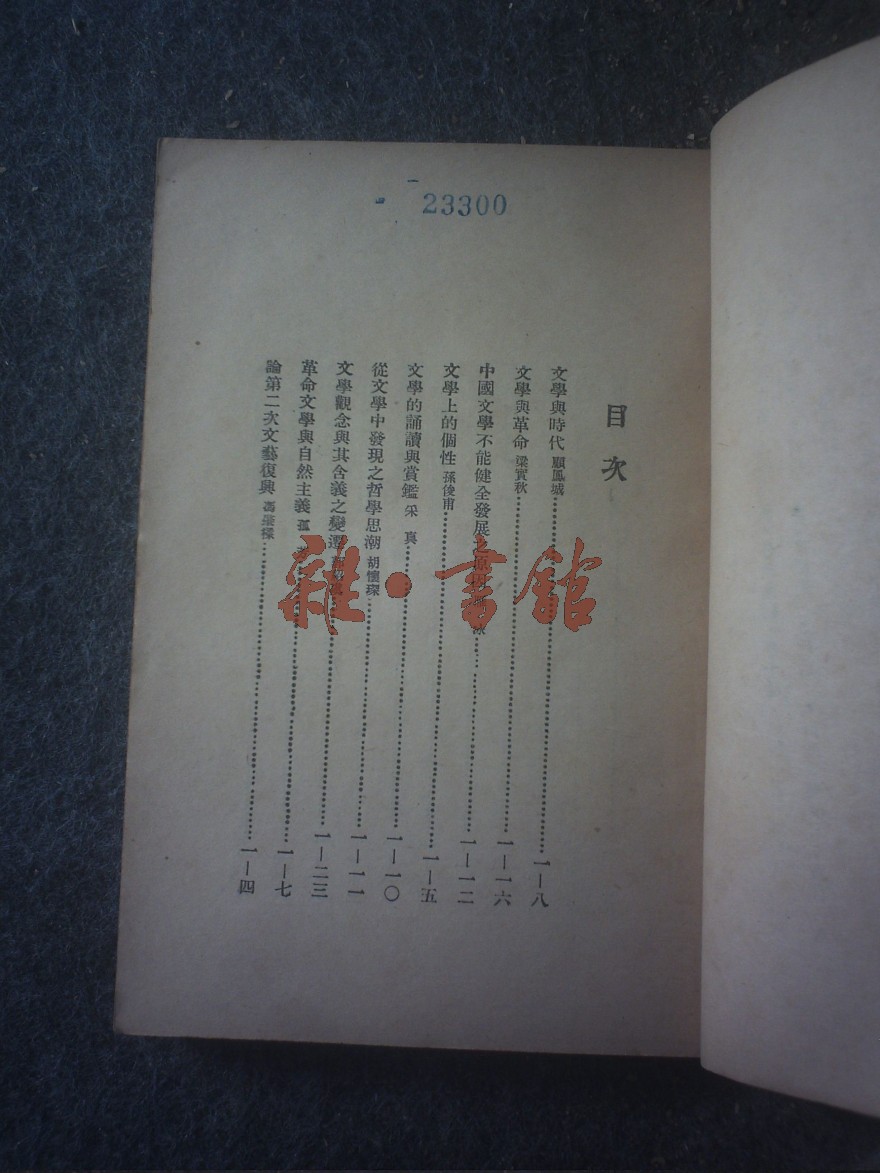 23300
目次
文學與時代 顧鳳城 一—八
文學與革命 梁實秋 一—一六
中國文學不能健全發展之原因 冰 一—一二
文學上的個性 孫俊甫 一—五
文學的誦讀與賞鑑 采真 一—一〇
從文學中發現之哲學思潮 胡懷琛 一—一一
文學觀念與其含義之變遷 一—二三
革命文學與自然主義 孤 一—七
論第二次文藝復興 一—四
雜·書館